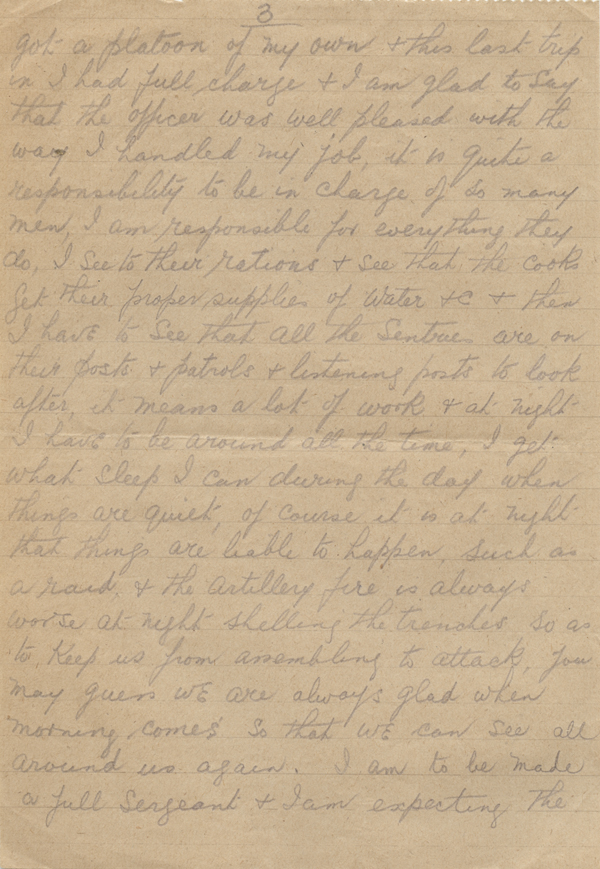 3
got a platoon of my own + this last trip
in I had full charge + I am glad to say
that the officer was well pleased with the
way I handled my job, it is quite a
responsibility to be in charge of so many
men, I am responsible for everything they
do, I see to their rations + see that the cooks
get their proper supplies of water &c + then
I have to see that all the Sentries are on
their posts + patrols + listening posts to look
after, it means a lot of work + at night
I have to be around all the time, I get
what sleep I can during the day when
things are quiet, of course it is at night
that things are liable to happen, such as
a raid, + the artillery fire is always
worse at night shelling the trenches so as
to keep us from assembling to attack, you
may guess we are always glad when
morning comes so that we can see all
around us again. I am to be made
a full Sergeant + I am expecting the